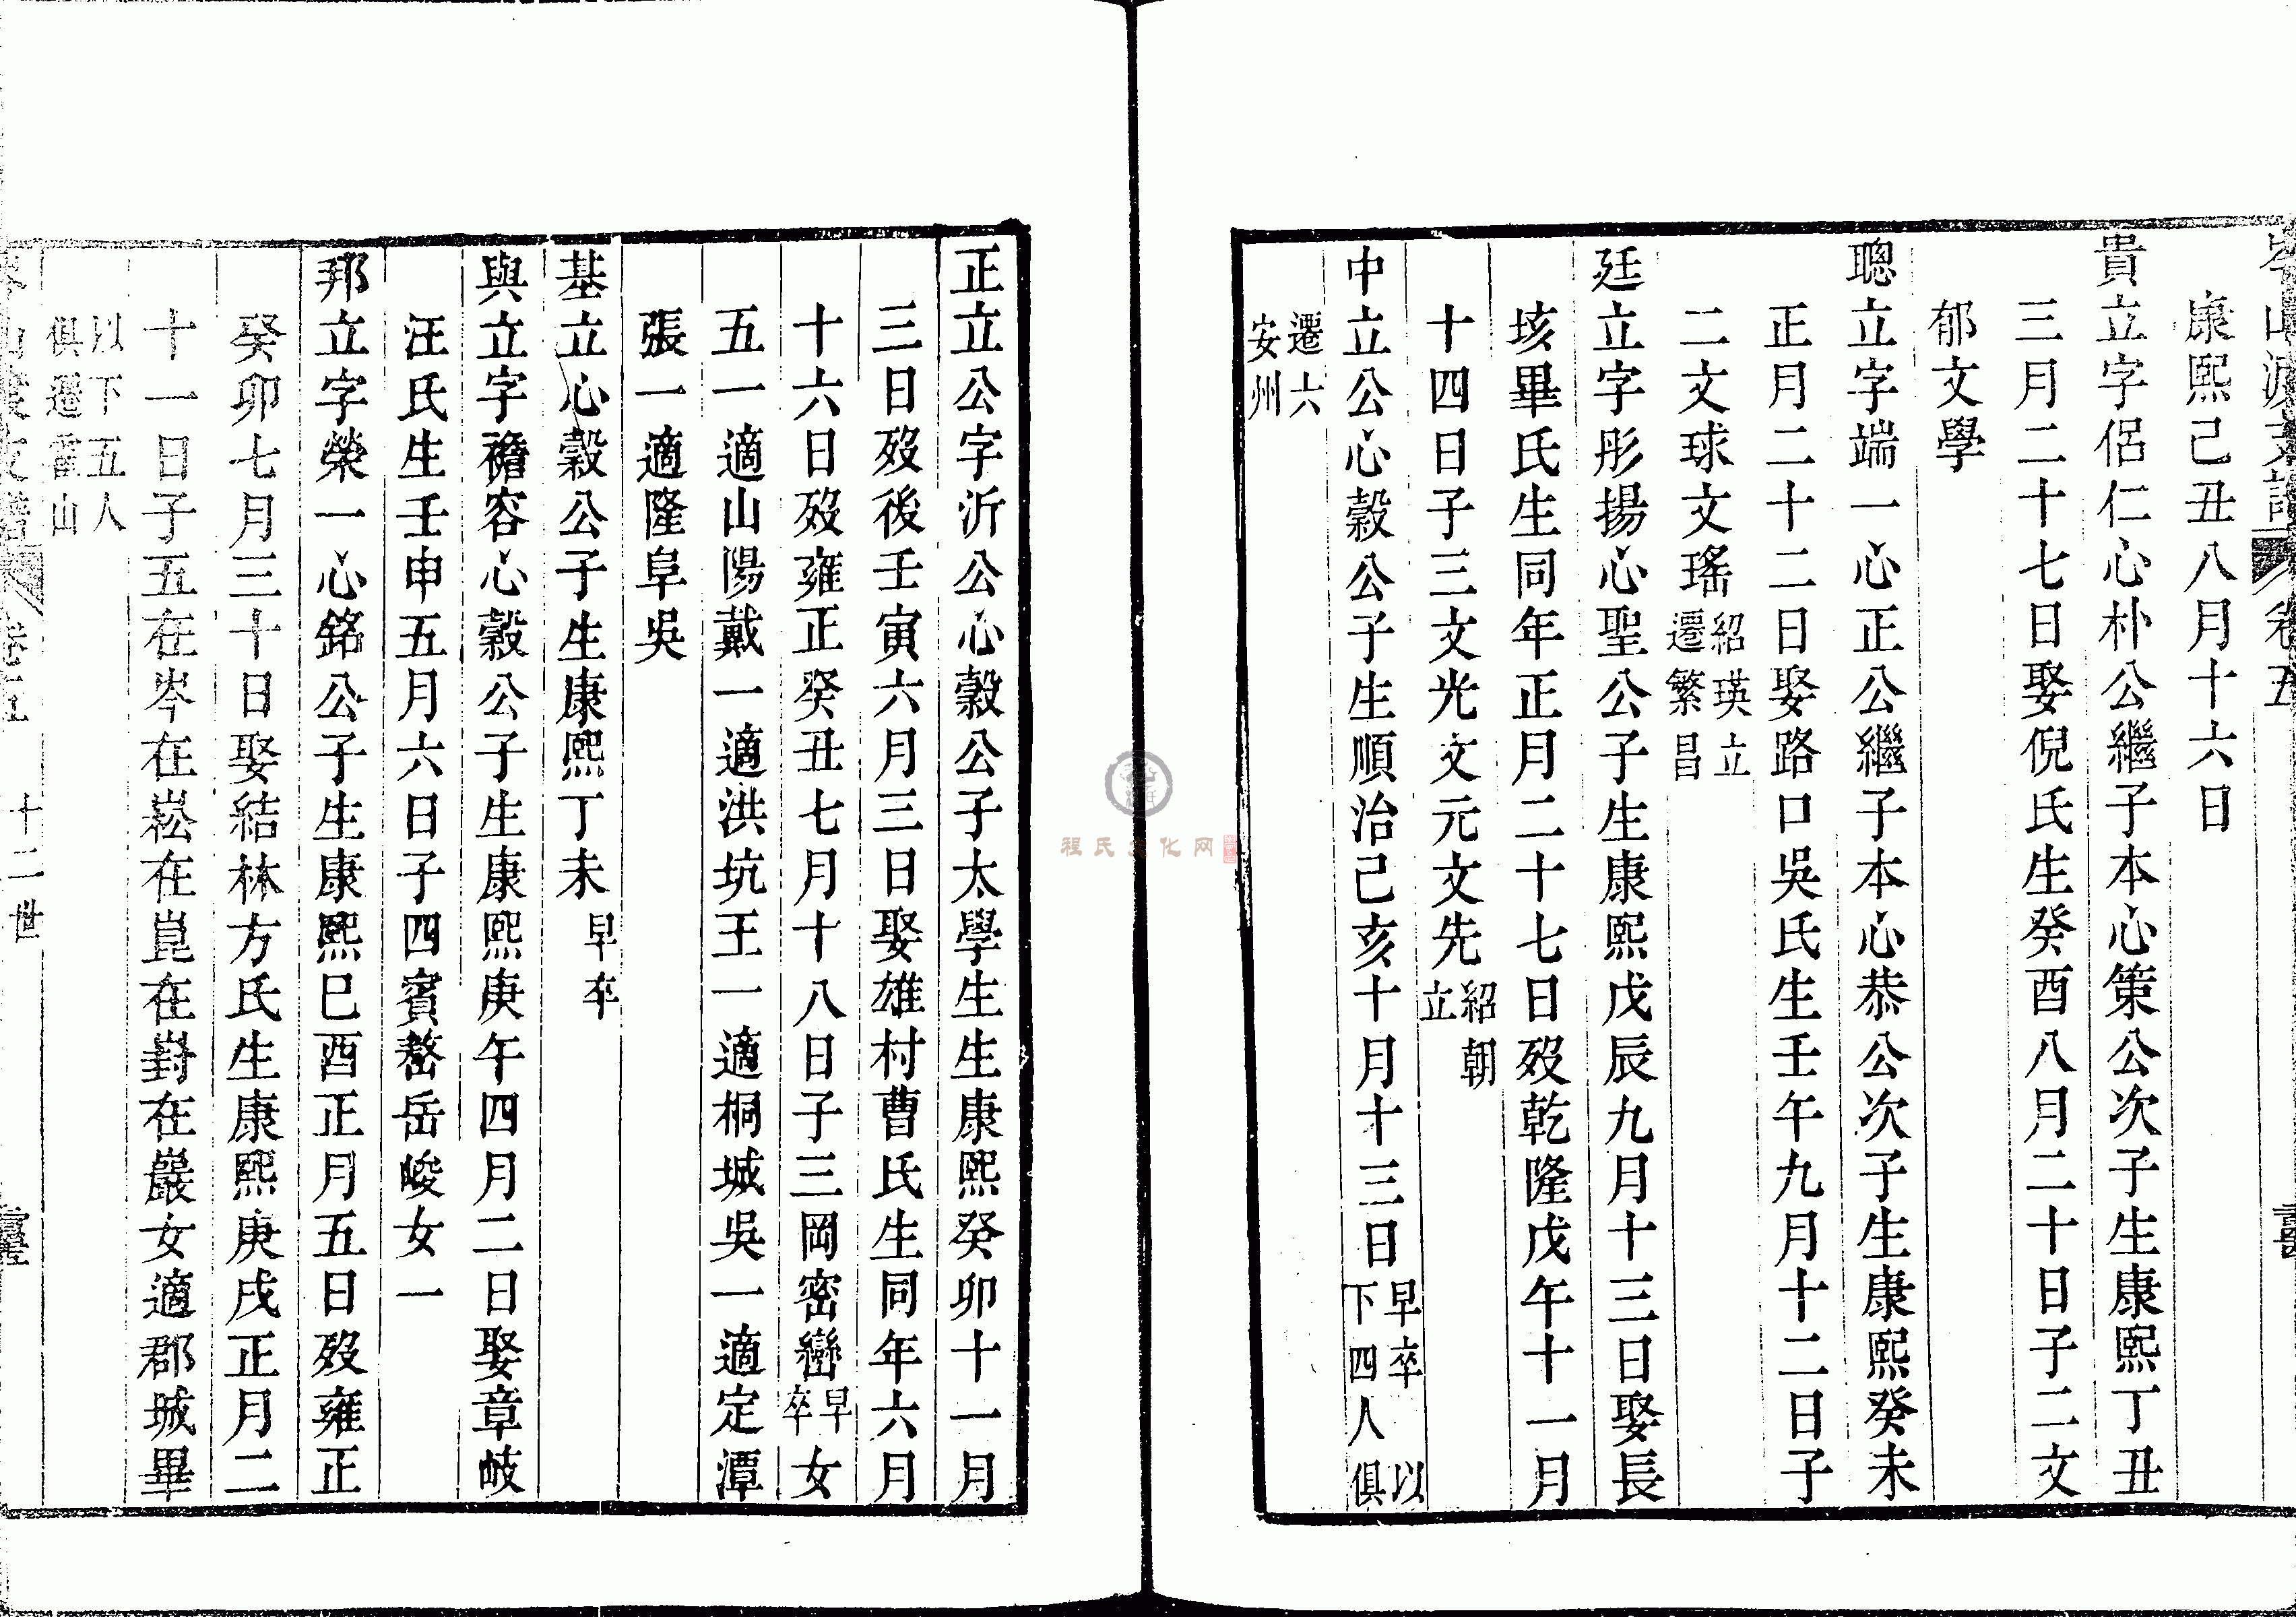 岑山渡支譜 卷五
康熙己丑八月十六日
貴立字侶仁心朴公繼子本心策公次子生康熙丁丑
三月二十七日娶倪氏生癸酉八月二十日子二文
郁文學
聰立字端一心正公繼子本心恭公次子生康熙癸未
正月二十二日娶路口吳氏生壬午九月十二日子
二文球文瑤紹瑛立遷繁昌
廷立字彤揚心聖公子生康熙戊辰九月十三日娶長
垓畢氏生同年正月二十七日歿乾隆戊午十一月
十四日子三文光文元文先紹朝立
中立公心穀公子生順治己亥十月十三日早卒以下四人俱
遷六安州
正立公字沂公心穀公子太學生生康熙癸卯十一月
三日歿後壬寅六月三日娶雄村曹氏生同年六月
十六日歿雍正癸丑七月十八日子三岡密巒早卒女
五一適山陽戴一適洪坑王一適桐城吳一適定潭
張一適隆阜吳
基立心穀公子生康熙丁未早卒
與立字襜容心穀公子生康熙庚午四月二日娶章岐
汪氏生壬申五月六日子四賓嶅岳峻女一
邦立字榮一心銘公子生康熙巳酉正月五日歿雍正
癸卯七月三十日娶結林方氏生康熙庚戌正月二
十一日子五在岑在崧在崑在崶在巖女適郡城畢
以下五人俱遷霍山
十二世
程氏文化网